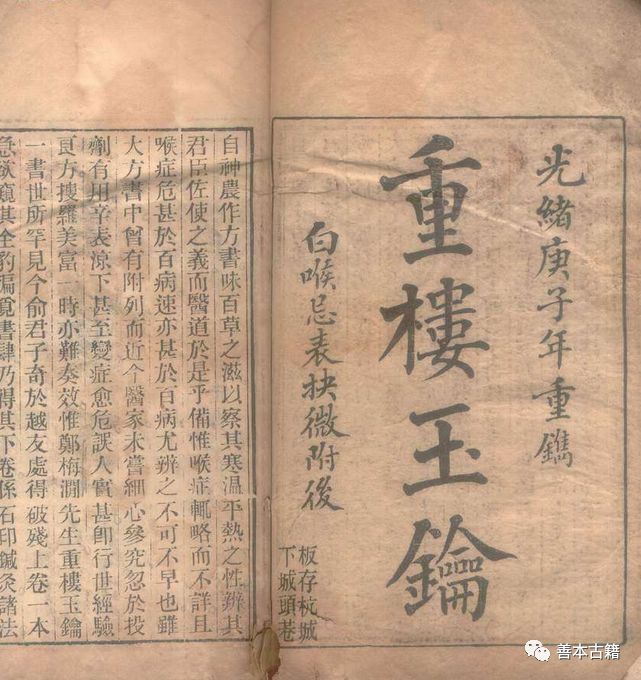 光緒庚子年重鐫
重樓玉鑰
白喉忌表抉微附後
板存杭城
下城頭巷
自神農作方書味百草之滋以察其寒温平熱之性辨其
君臣佐使之義而醫道於是乎備惟喉症輒略而不詳且
喉症危甚於百病速亦甚於百病尤辨之不可不早也雖
大方書中曾有附列而近今醫家未嘗細心參究忽於投
劑有用辛表涼下甚至變症愈危誤人實甚卽行世經驗
良方搜羅美富一時亦難奏效惟鄭梅澗先生重樓玉鑰
一書世所罕見今俞君子奇於越友處得破殘上卷一本
急欲窺其全豹徧覓書肆乃得其下卷係石印鍼灸諸法
善本古籍